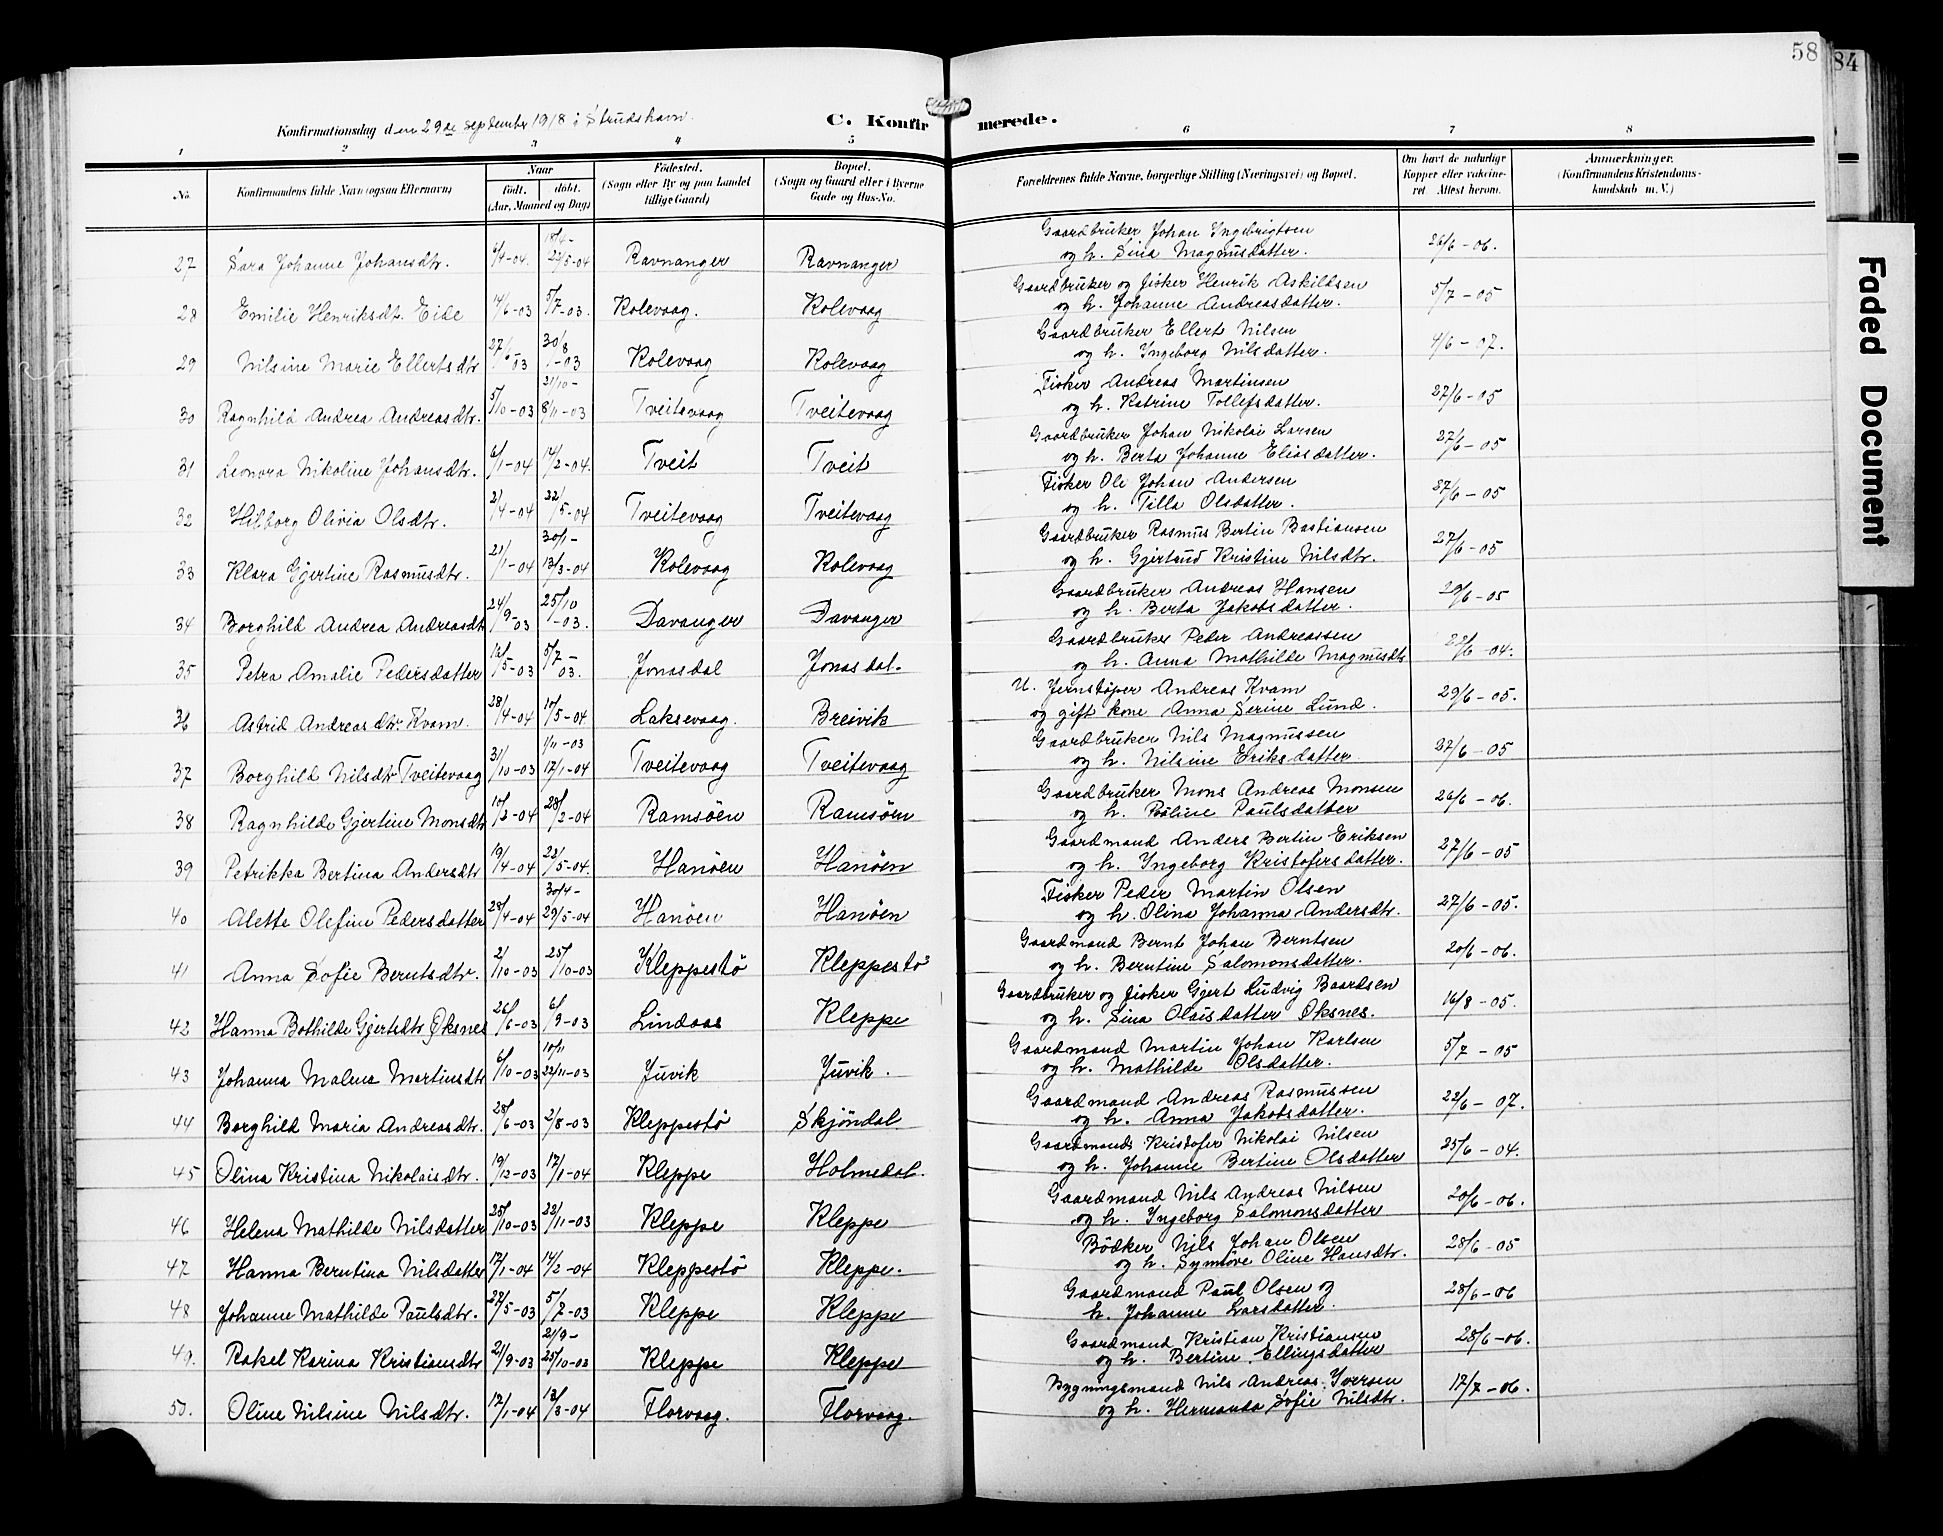 58
84
Faded Document
Konfirmationsdag den 29de september 1918 i Strudshavn.
C. Konfirmerede.
1 2 3 4 5 6 7 8
No. Konfirmandens fulde Navn (ogsaa Efternavn) Naar født. døbt. (Aar, Maaned og Dag) Fødested. (Sogn eller By og paa Landet tillige Gaard) Bopæl. (Sogn og Gaard eller i Byerne Gade og Hus-No. Forældrenes fulde Navne, borgerlige Stilling (Næringsvei) og Bopæl. Om havt de naturlige Kopper eller vaccineret Attest herom. Anmærkninger. (Konfirmandens Kristendomskundskab m. V.)
27 Sara Johanne Johansdtr. 6/4-04. 22/5-04 Ravnanger Ravnanger Gaardbruker Johan Ingebrigtsen og h. Sina Magnusdatter. 26/6-06.
28 Emilie Henriksdt. Eide 14/6-03 5/7-03. Kolevaag. Kolevaag Gaardbruker og fisker Henrik Askildsen og h. Johanne Andreasdatter. 5/7-05
29 Nilsine Marie Ellertsdtr 27/6-03 30/8-03 Kolevaag Kolevaag Gaardbruker Ellert Nilsen og h. Ingeborg Nilsdatter. 4/6-07.
30 Ragnhild Andrea Andreasdtr. 5/10-03 21/10- 8/11-03 Tveitevaag Tveitevaag Fisker Andreas Martinsen og h. Katrine Tollefsdatter. 27/6-05
31 Leonora Nikoline Johansdtr. 6/1-04 14/2-04. Tveit Tveit Gaardbruker Johan Nikolai Larsen og h. Berta Johanne Eliasdatter. 27/6-05
32 Hilborg Olivia Olsdtr. 2/4-04 22/5-04 Tveitevaag Tveitevaag Fisker Ole Johan Andersen og h. Tilla Olsdatter. 27/6-05
33 Klara Gjertine Rasmusdtr. 21/1-04 30/1- 13/3-04 Kolevaag Kolevaag Gaardbruker Rasmus Bertin Bastiansen og h. Gjertrud Kristine Nilsdtr. 27/6-05
34 Borghild Andrea Andreasdt 24/9-03 25/10-03. Davanger Davanger Gaardbruker Andreas Hansen og h. Berta Jakobsdatter. 29/6-05
35 Petra Amalie Pedersdatter 5/7-03. Jonasdal Jonasdal. Gaardbruker Peder Andreassen og h. Anna Mathilde Magnusdtr 22/6-04.
36 Astrid Andreasdtr. Kvam 28/4-04 10/5-04 Laksevaag. Breivik U. Jernstøper Andreas Kvam og gift kone Anna Serine Lund. 29/6-05.
37 Borghild Nilsdtr Tveitevaag 31/10-03 1/11-03 17/1-04 Tveitevaag Tveitevaag Gaardbruker Nils Magnussen og h. Nilsine Eriksdatter. 27/6-05
38 Ragnhilde Gjertine Monsdtr 10/2-04 28/2-04 Ramsöen Ramsöen Gaardbruker Mons Andreas Monsen og h. Paulsdatter 26/6-06.
39 Petrikka Bertina Andersdtr 19/4-04 22/5-04. Hanöen Hanöen Gaardmand Anders Bertin Eriksen og h. Ingeborg Kristofersdatter. 27/6-05
40 Alette Olefine Pedersdatter 28/4-04 30/4- 29/5-04 Hanöen Hanöen Fisker Peder Martin Olsen og h. Olina Johanna Andersdtr. 27/6-05.
41 Anna Sofie Berntsdtr. 2/10-03 25/10-03 Kleppestö Kleppestö Gaardmand Bernt Johan Berntsen og h. Berntine Salomonsdatter. 20/6-06.
42 Hanna Bothilde Gjertsdtr Øksnes 26/6-03 6/9-03 Lindaas Kleppe Gaardbruker og fisker Gjert Ludvig Baardsen og h. Sina Olaisdatter Øksnes. 16/8-05.
43 Johanna Malena Martinsdtr 6/10-03 10/11 22/11-03 Juvik Juvik. Gaardmand Martin Johan Karlsen og h. Mathilde Olsdatter. 5/7-05
44 Borghild Maria Andreasdtr. 28/6-03 2/8-03 Kleppestö Skjöndal Gaardmand Andreas Rasmussen og h. Anna Jakobsdatter. 22/6-07.
45 Olina Kristina Nikolaisdtr. 19/12-03 17/1-04 Kleppe Holmedal. Gaardmand Kristofer Nikolai Nilsen og h. Johanne Bertine Olsdatter 25/6-04.
46 Helena Mathilde Nilsdatter 25/10-03 22/11-03 Kleppe Kleppe Gaardmand Nils Andreas Nilsen og h. Ingeborg Salomonsdatter 20/6-06.
47 Hanna Berntina Nilsdatter 17/1-04 14/2-04 Kleppestö Kleppe. Bödker Nils Johan Olsen og h. Synnöve Oline Hansdtr. 28/6-05
48 Johanne Mathilde Paulsdtr. 27/5-03 5/7-03 Kleppe Kleppe Gaardmand Paul Olsen og h. Johanne Larsdatter. 28/6-06
49. Rakel Karina Kristiansdtr 2/9-03 21/9- 25/10-03 Kleppe Kleppe Gaardmand Kristian Kristiansen og h. Bertine Ellingsdatter 28/6-06.
50. Oline Nilsine Nilsdtr. 17/1-04 13/3-04 Florvaag. Florvaag. Bygningsmand Nils Andreas Iversen og h. Hermanda Sofie Nilsdtr. 17/7-06.